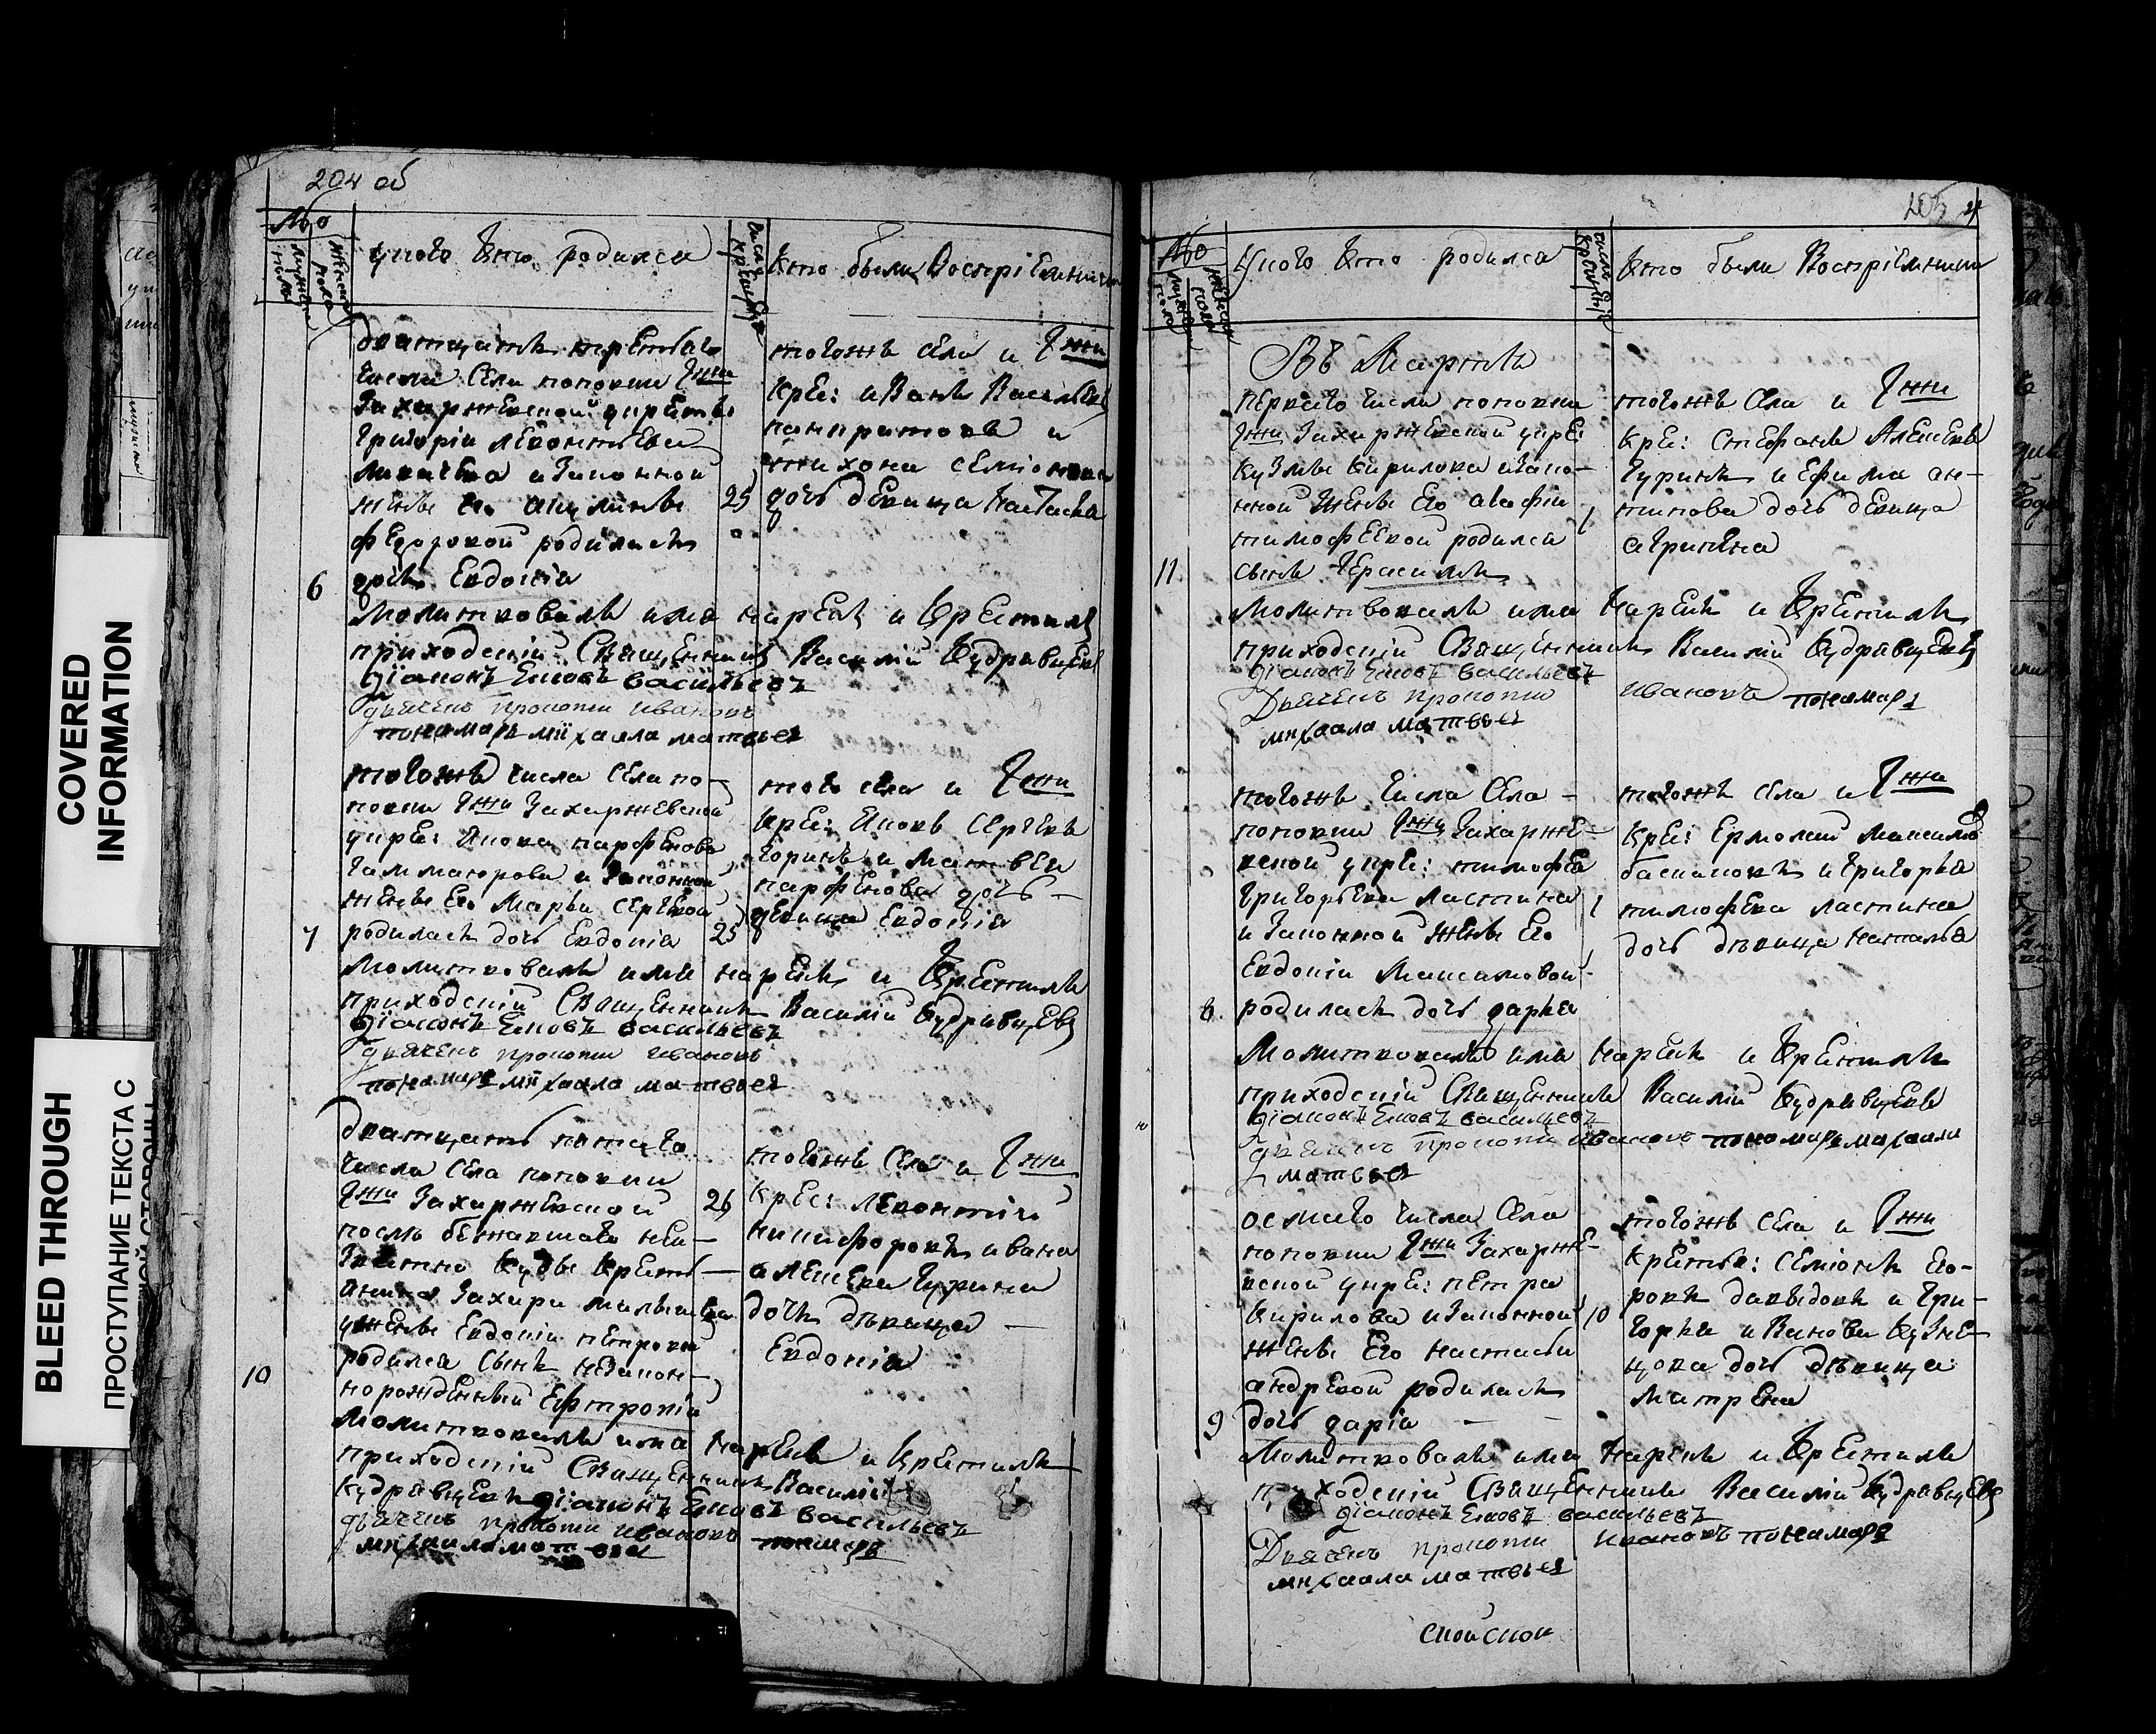 COVERED
INFORMATION
BLEED THROUGH
ПРОСТУПАНИЕ ТЕКСТА С
204 об
№
мужеска пола
женска пола
У кого кто родился
число крещенія
Кто были Восприемники
дватцать третьего
числа Села поповки Гжи
Захаржевской у крестья
Григорія леконтьева
и Законной
женѣ его акулинѣ
федоровой родилась
6 дочь Евдокія
25
тогожъ села и Гжи
Кре: иванъ Васильевъ
панкратовъ и
тихона семіонова
дочь девица
Молитвовалъ имя нарекъ и Крестилъ
приходскій Священникъ Василій Кудрявцевъ
діаконъ Ековъ васильевъ
дьячекъ прокопи ивановъ
понамарь михаила матвьев
тогожъ числа села по-
повки Гжи Захаржевской
у кре: Якова парфенова
и Законной
женѣ его Марьи сергевой
7 родилась дочь Евдокія
25
того села и Гжи
Кре: Яковъ Сергевъ
и матвеи
парфенова дочь
девица Евдокія
Молитвовалъ имя нарекъ и Крестилъ
приходскій Священникъ Василій Кудрявцевъ
діаконъ Ековъ васильевъ
дьячекъ прокопи ивановъ
понамарь михаила матвьев
дватцать пятаго
числа села поповки
Гжи Захаржевской
после бежавшаго неи-
звѣстно куды крестья-
нина Захара
у женѣ Евдокіи петровой
родился сынъ незакон-
10 норожденный Ефтропій
26
тогожъ Села и Гжи
Крес: леконтій
никифоровъ ивана
алексева Гурина
дочь дѣвица
Евдокія
Молитвовалъ имя нарекъ и Крестилъ
приходскій Священникъ Василій
Кудрявцевъ діаконъ Ековъ васильевъ
дьячекъ прокопи ивановъ понамарь
михаила матвьев
205
4
№
мужеска пола
женска пола
У кого кто родился
число крещенія
Кто были Восприемники
Въ Мартѣ
перваго числа поповки
Гжи Захаржевской у кре:
Кузмы Кирилова изако-
нной женѣ Его агафіи
тимофеевой родился
11 сынъ Герасимъ
1
тогожъ села и Гжи
Кре: Стефанъ Алексевъ
Гуринъ и Ефима ан-
типова дочь девица
Молитвовалъ имя нарекъ и Крестилъ
приходскій Священникъ Василій Кудрявцевъ
діаконъ Ековъ васильевъ
Дьячекъ прокопи ивановъ понамарь
михаала матвьев
тогожъ числа села
поповки Гжи Захарже-
вской у кре: тимофея
Григорьева ластина
и Законной женѣ Его
Евдокіи Максимовой
8 родилась дочь дарья
1
тогожъ села и Гжи
Кре: Ермолай Максимовъ
и Григорья
тимофева ластина
дочь дѣвица наталья
Молитвовалъ имя нарекъ и Крестилъ
приходскій Священникъ Василій Кудрявцевъ
діаконъ Ековъ васильевъ
дьячекъ прокопи ивановъ понамарь михаила
матвьев
осмаго числа Села
поповки Гжи Захарже-
вской у кре: петра
Кирилова изаконной
женѣ Его настасьи
андревой родилась
9 дочь дарія
10
тогожъ села и Гжи
Крестья: Семіонъ Его-
ровъ давыдовъ и Гри-
горья иванова Кузне-
цова дочь дѣвица
Матрена
Молитвовалъ имя нарекъ и Крестилъ
приходскій Священникъ Василій Кудрявцевъ
діаконъ Ековъ васильевъ
Дьячекъ прокопи ивановъ понамарь
михаала матвьев